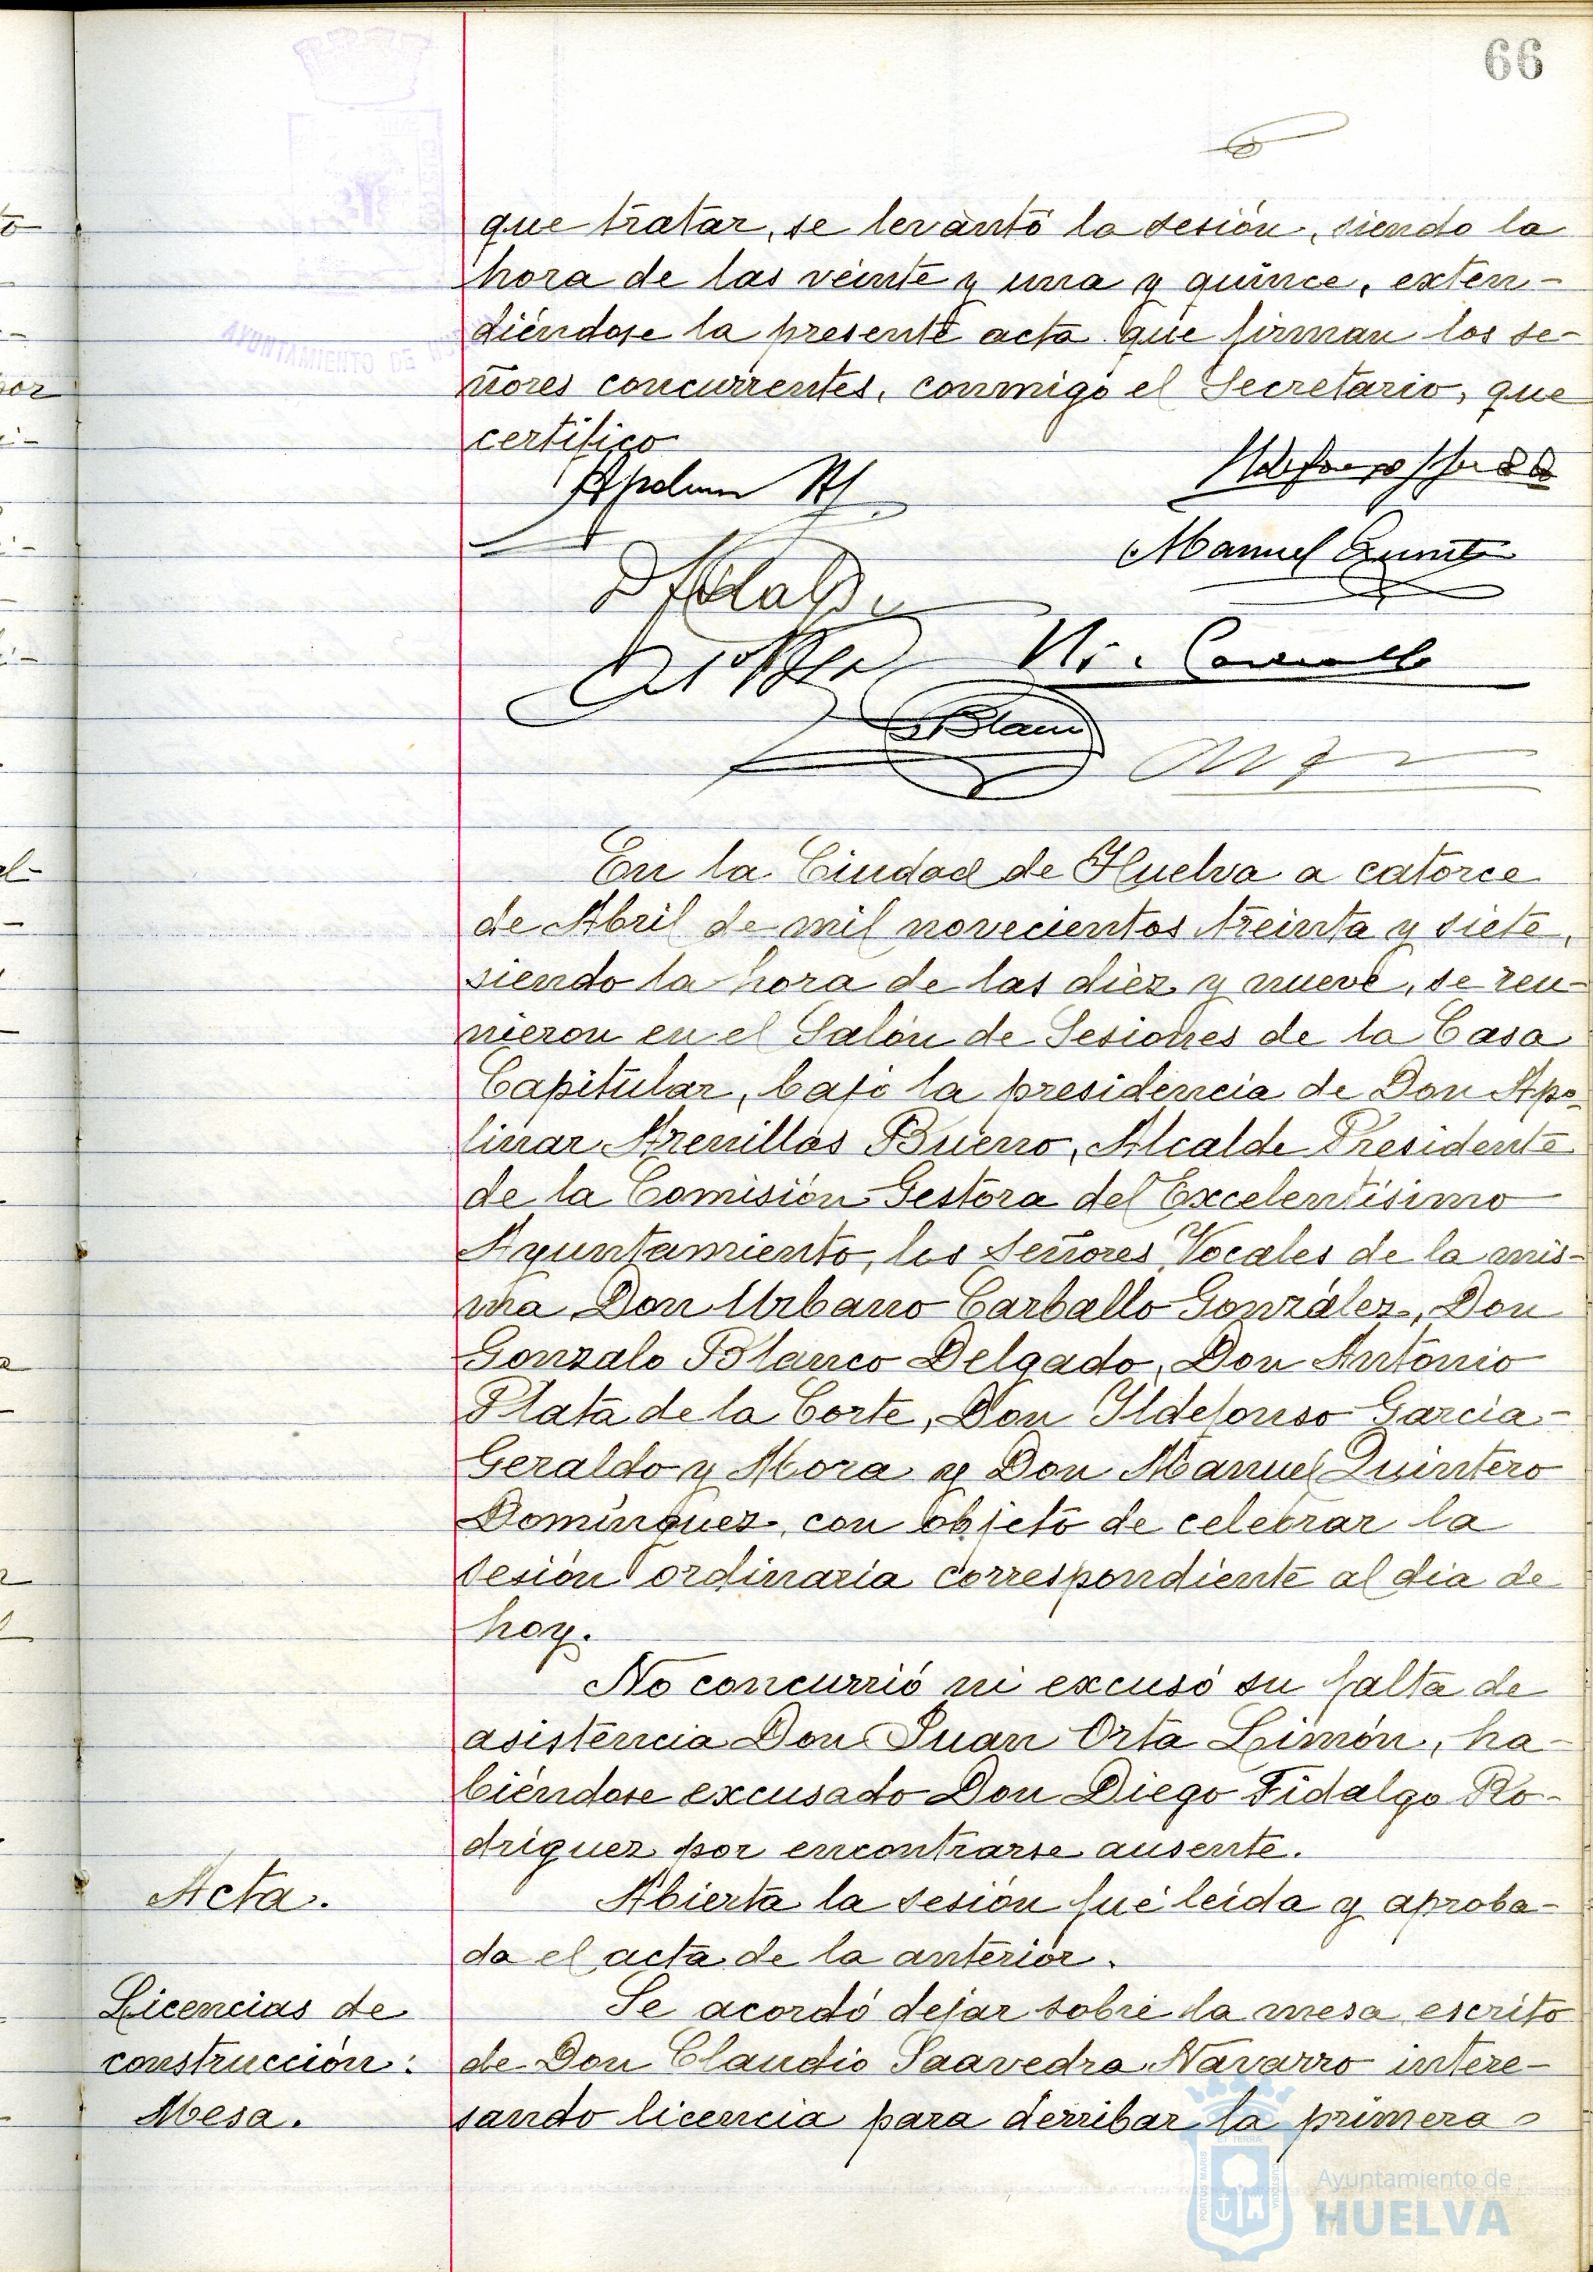 66
que tratar, se levantó la sesión, siendo la
hora de las veinte y una y quince, exten-
diéndose la presente acta que firman los se-
ñores concurrentes, conmigo el Secretario, que
certifico
Manuel Quinte
Blanco
En la Ciudad de Huelva a catorce
de Abril de mil novecientos treinta y siete,
siendo la hora de las diez y nueve, se reu-
nieron en el Salón de Sesiones de la Casa
Capitular, bajo la presidencia de Don Apo-
linar Arenillas Bueno, Alcalde Presidente
de la Comisión Gestora del Excelentísimo
Ayuntamiento, los Señores Vocales de la mis-
ma Don Urbano Carballo González, Don
Gonzalo Blanco Delgado, Don Antonio
Plata de la Corte, Don Ildefonso García-
Geraldo y Mora y Don Manuel Quintero
Domínguez, con objeto de celebrar la
sesión ordinaria correspondiente al día de
hoy.
No concurrió ni excusó su falta de
asistencia Don Juan Orta Limón, ha-
biéndose excusado Don Diego Fidalgo Ro-
driguez por encontrarse ausente.
Acta.
Abierta la sesión fué leída y aproba-
da el acta de la anterior.
Licencias de
construcción:
Mesa.
Se acordó dejar sobre la mesa escrito
de Don Claudio Saavedra Navarro intere-
sando licencia para derribar la primera
AYUNTAMIENTO DE
Ayuntamiento de
HUELVA